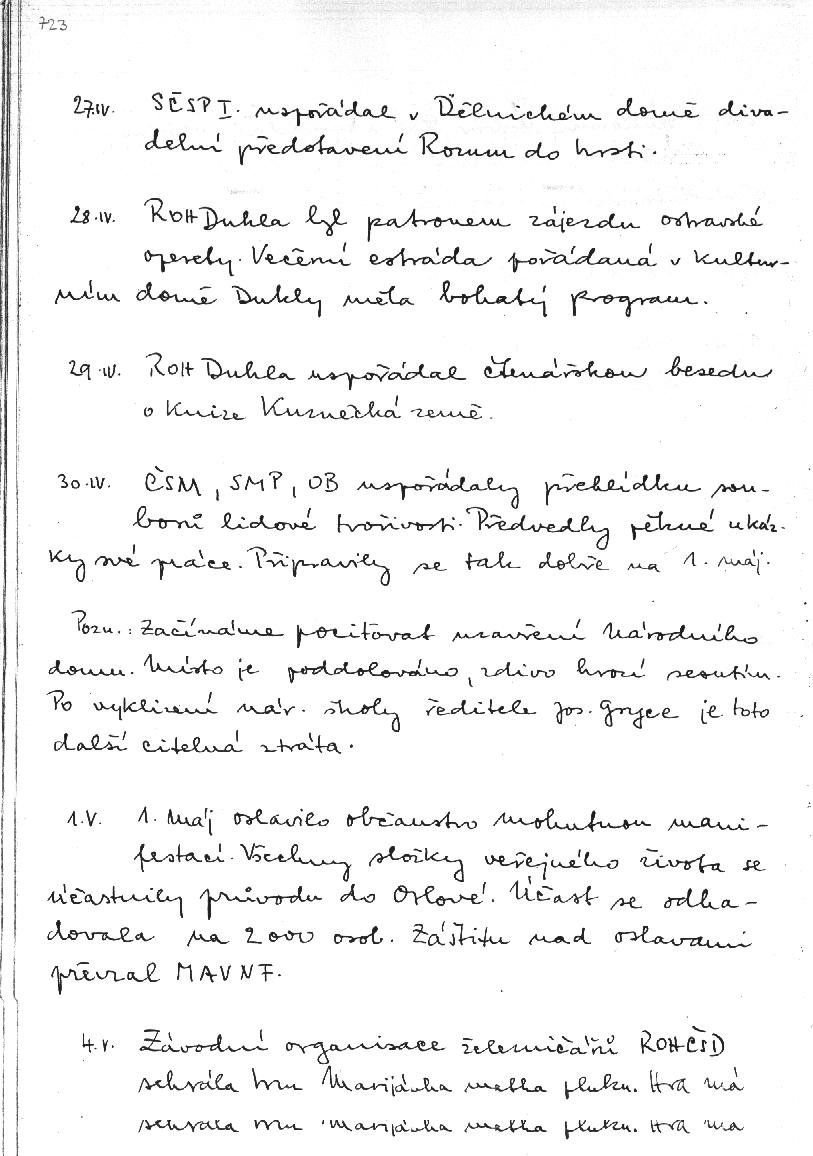 723
27.IV. SČSP I. uspořádal v Dělnickém domě diva-
delní představení Rozum do hrsti.
28.IV. ROH Dukla byl patronem zájezdu ostravské
operety. Večerní estráda pořádaná v Kultur-
ním domě Dukly měla bohatý program.
29.IV. ROH Dukla uspořádal čtenářskou besedu
o knize Kuznečká země.
30.IV. ČSM, SMP, OB uspořádaly přehlídku sou-
borů lidové tvořivosti. Předvedly pěkné ukáz-
ky své práce. Připravily se tak dobře na 1. máj.
Pozn.: Začínáme pociťovat uzavření Národního
domu. Místo je poddolováno, zdivo hrozí sesutím.
Po vyklizení nár. školy ředitele Jos. Gryce je toto
další citelná ztráta.
1.V. 1. máj oslavilo občanstvo mohutnou mani-
festací. Všechny složky veřejného života se
účastnily průvodu do Orlové. Účast se odha-
dovala na 2000 osob. Záštitu nad oslavami
převzal MAVNF.
4.V. Závodní organisace železničářů ROH-ČSD
sehrála hru Marijánka matka pluku. Hra má
sehrála hru Marijánka matka pluku. Hra má